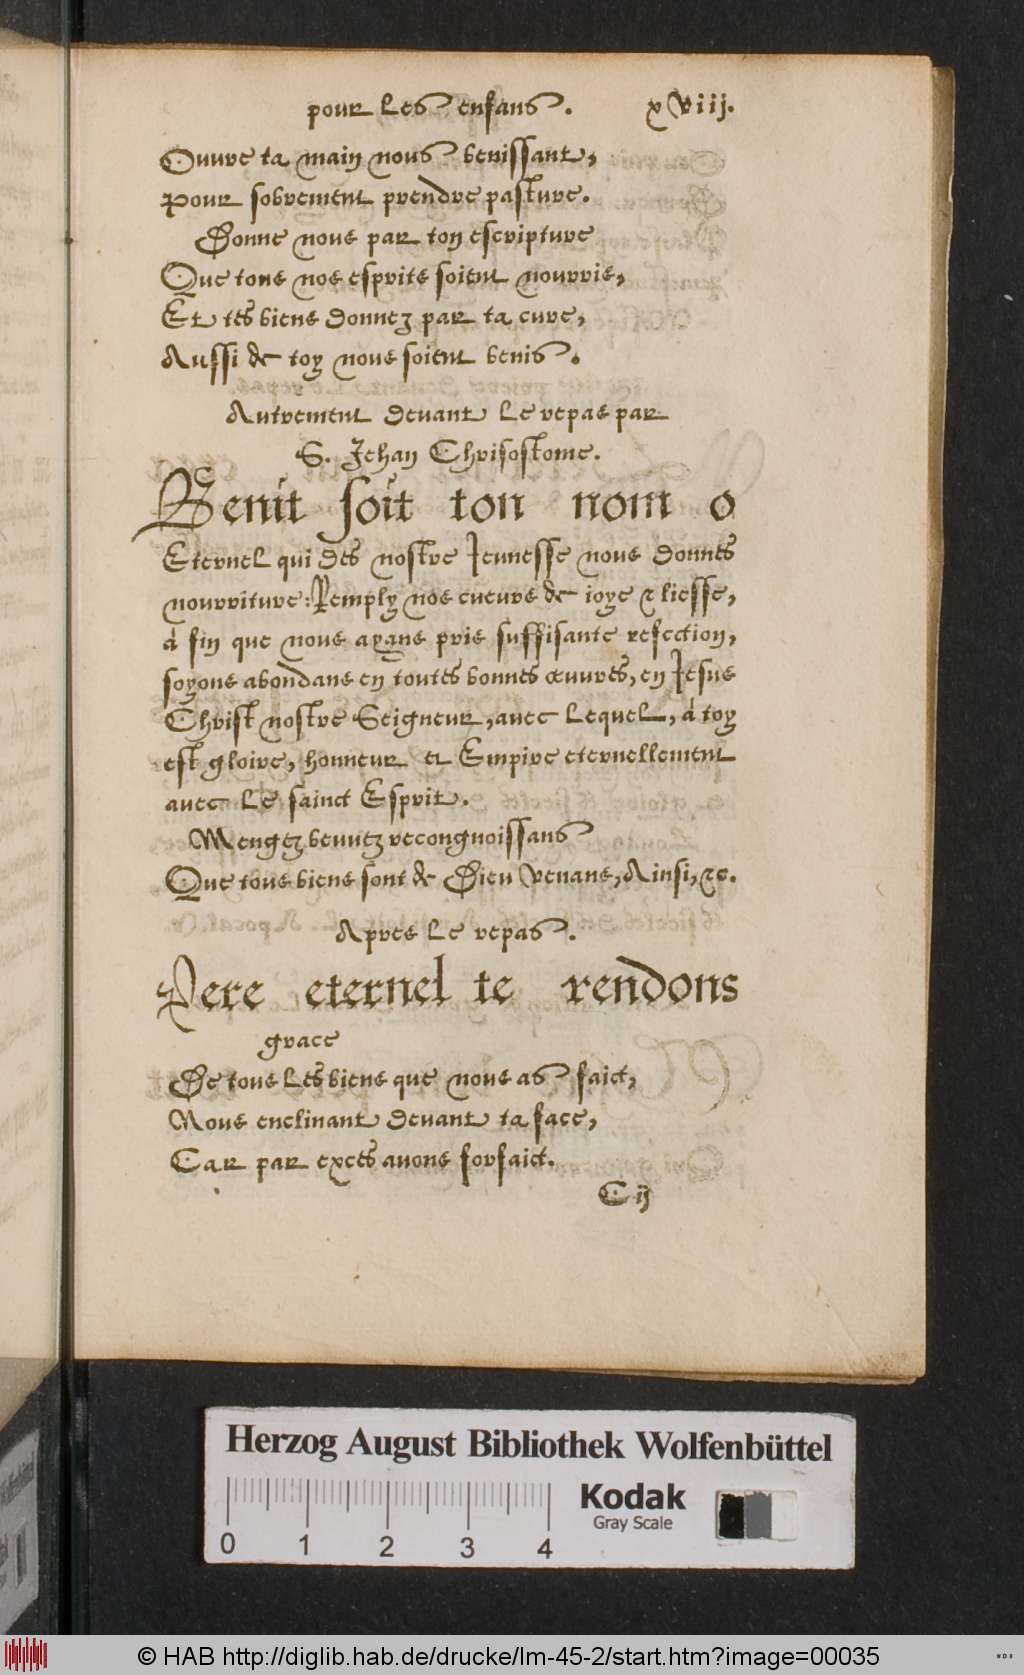 pour les enfans. xviij.
Ouvre ta main nous benissant,
Pour sobrement prendre pasture.
Donne nous par ton escripture
Que tous noz esprits soient nourris,
Et tes biens donnez par ta cure,
Aussi de toy nous soient benis.
Autrement devant le repas par
S. Jehan Chrisostome.
Benit soit ton nom o
Eternel qui dés nostre Jeunesse nous donnes
nourriture: Remply noz cueurs de ioye & liesse,
à fin que nous ayans pris suffisante refection,
soyons abondans en toutes bonnes œuvres, en Jesus
Christ nostre Seigneur, avec lequel, à toy
est gloire, honneur et Empire eternellement
avec le sainct Esprit.
Mengez beuvez recongnoissans
Que tous biens sont de Dieu venans, Ainsi, &c.
Apres le repas.
Pere eternel te rendons
grace
De tous les biens que nous as faict,
Nous enclinant devant ta face,
Car par exces avons forfaict.
C ij
Herzog August Bibliothek Wolfenbüttel
0 1 2 3 4
Kodak
Gray Scale
© HAB http://diglib.hab.de/drucke/lm-45-2/start.htm?image=00035